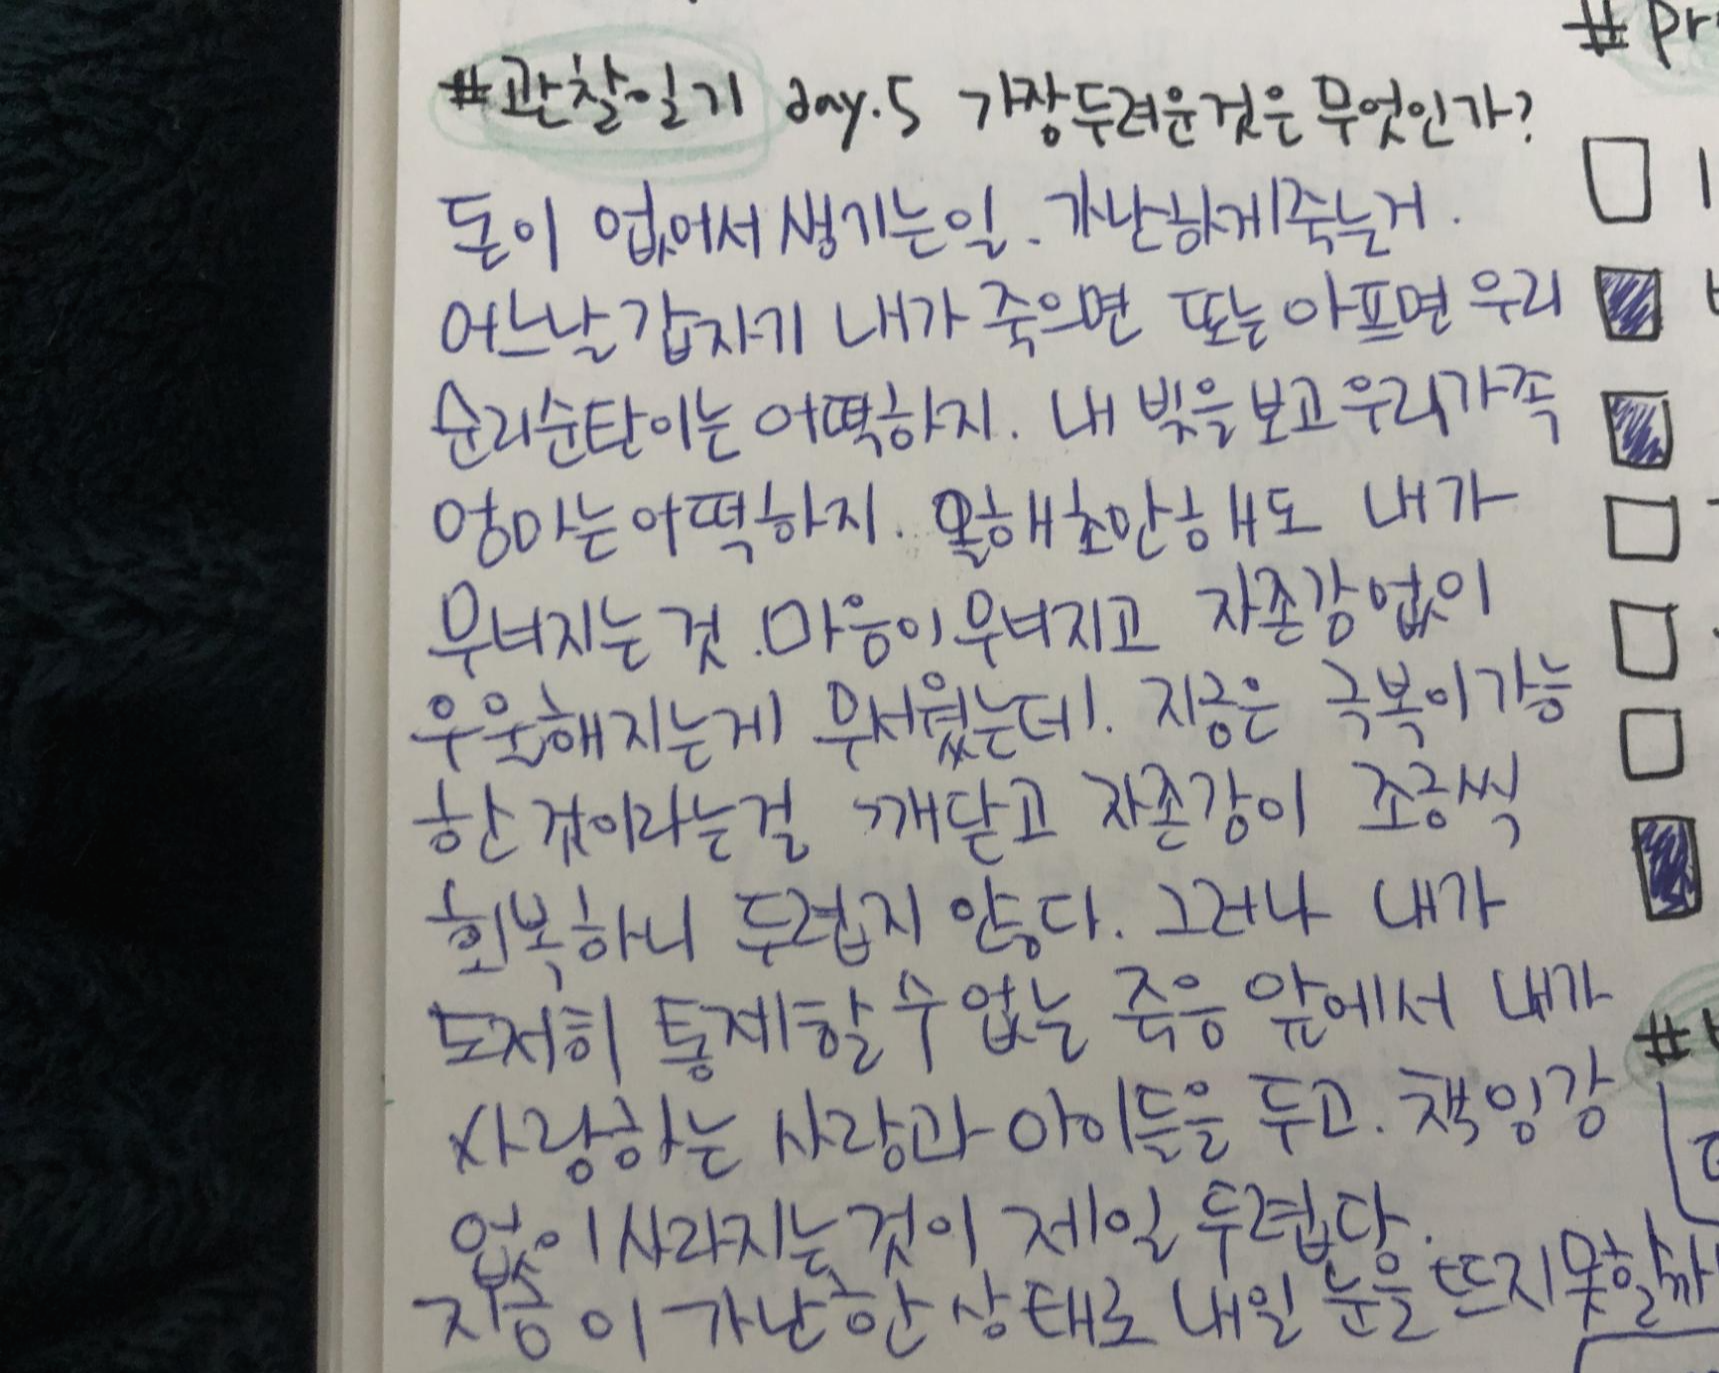 #관찰일기 day.5 가장두려운것은 무엇인가?
돈이 없어서 생기는일. 가난하게죽는거.
어느날 갑자기 내가 죽으면 또는 아프면 우리
순리순탄이는 어떡하지. 내 빚을 보고 우리가족
엄마는 어떡하지. 올해초만해도 내가
무너지는 것. 마음이 무너지고 자존감 없이
우울해지는게 무서웠는데. 지금은 극복이 가능
한 것이라는걸 깨닫고 자존감이 조금씩
회복하니 두렵지 않다. 그러나 내가
도저히 통제할 수 없는 죽음 앞에서 내가
사랑하는 사람과 아이들을 두고. 책임감
없이 사라지는 것이 제일 두렵다.
지금 이 가난한 상태로 내일 눈을 뜨지 못할까
#
#